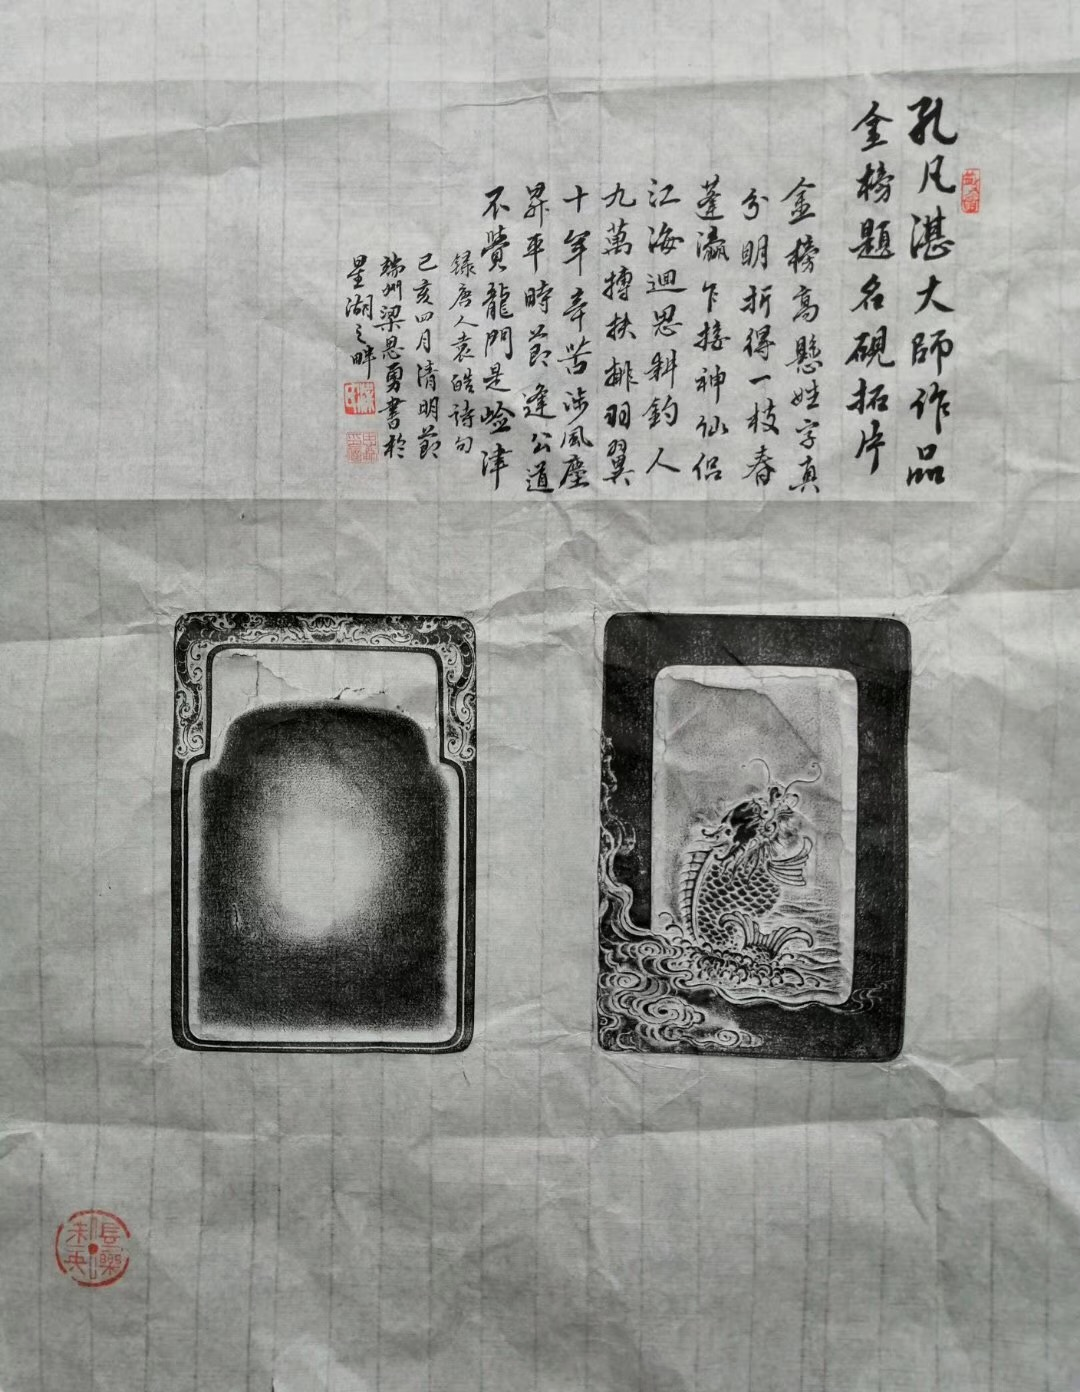 孔凡湛大師作品
金榜題名硯拓片
金榜高懸姓字真
分明折得一枝春
蓬瀛乍接神仙侶
江海迴思耕釣人
九萬摶扶排羽翼
十年辛苦涉風塵
昇平時節逢公道
不覺龍門是嶮津
録唐人袁皓詩句
己亥四月清明節
端州梁思勇書於
星湖之畔
長樂未央